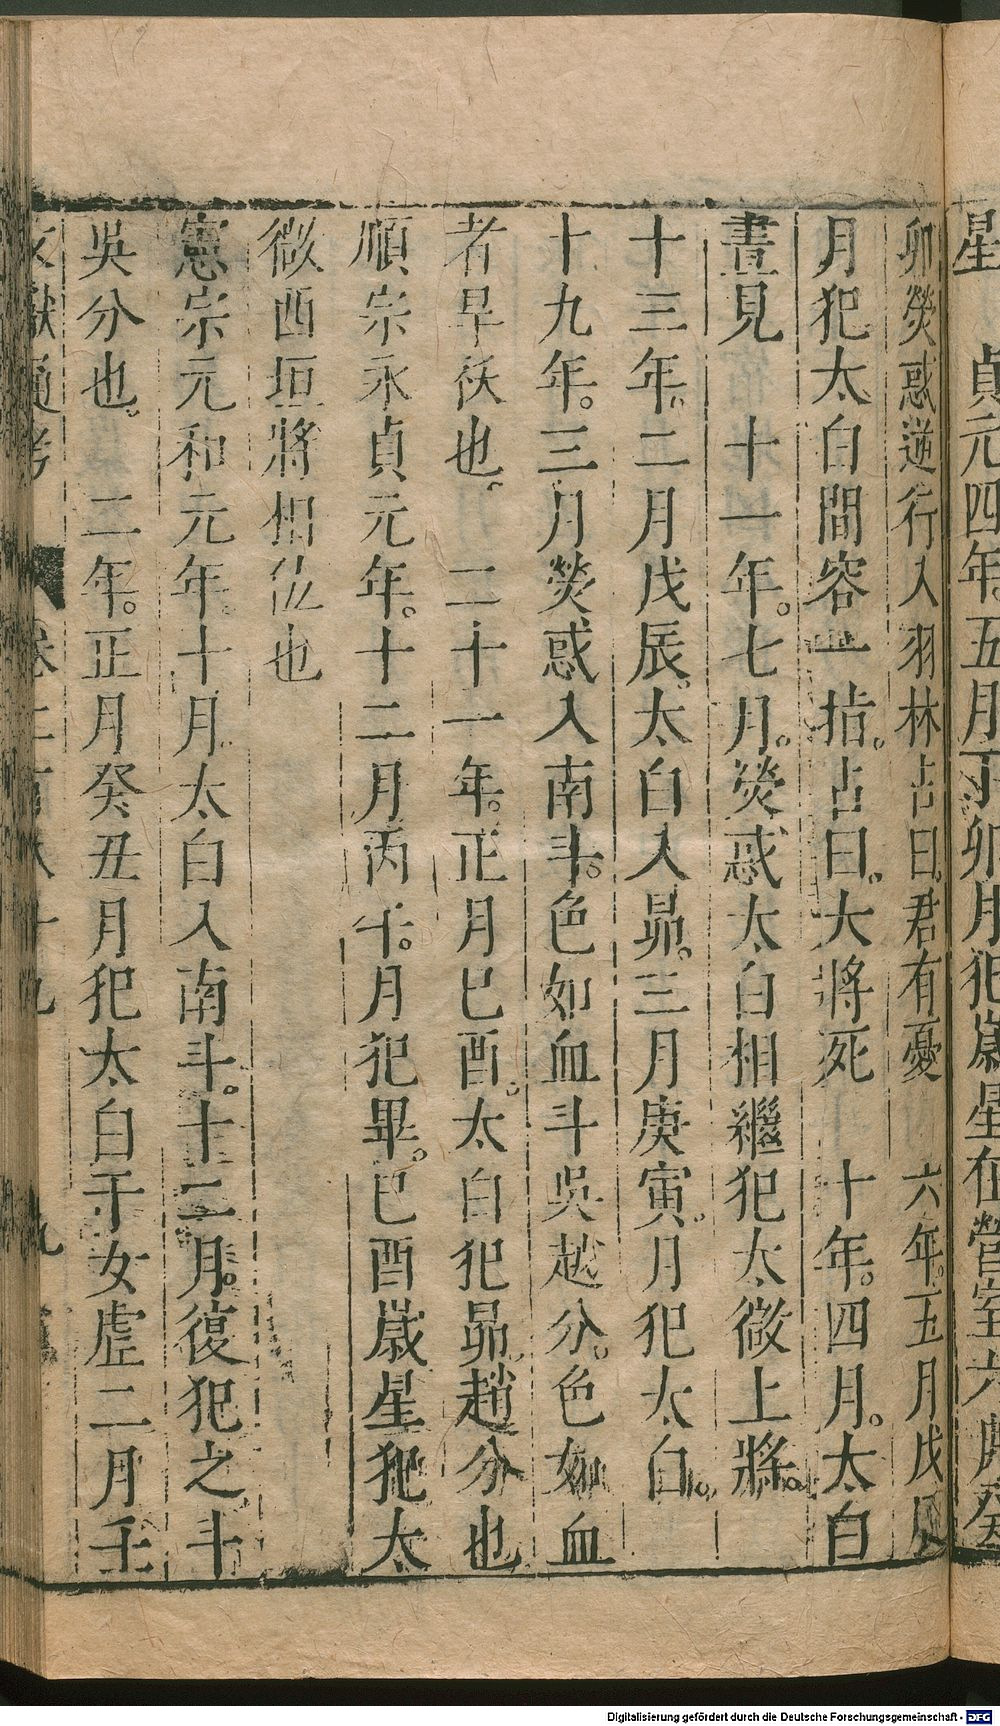 星　貞元四年。五月丁卯月犯歲星在營室六歲癸
卯熒惑逆行入羽林占曰。君有憂　六年。五月戊辰
月犯太白間容一指。占曰。大將死　十年。四月。太白
晝見　十一年。七月。熒惑太白相繼犯太微上將。
十三年。二月戊辰。太白入昴。三月庚寅。月犯太白。
十九年。三月熒惑入南斗。色如血斗吳越分。色如血
者旱祆也。　二十一年。正月巳酉。太白犯昴。趙分也
順宗永貞元年。十二月丙午。月犯畢。巳酉歲星犯太
微西垣將相位也
憲宗元和元年。十月。太白入南斗。十二月。復犯之斗
吳分也。　二年。正月癸丑月犯太白于女虛二月壬
文獻通考　卷二百八十九　九
Digitalisierung gefördert durch die Deutsche Forschungsgemeinschaft - DFG